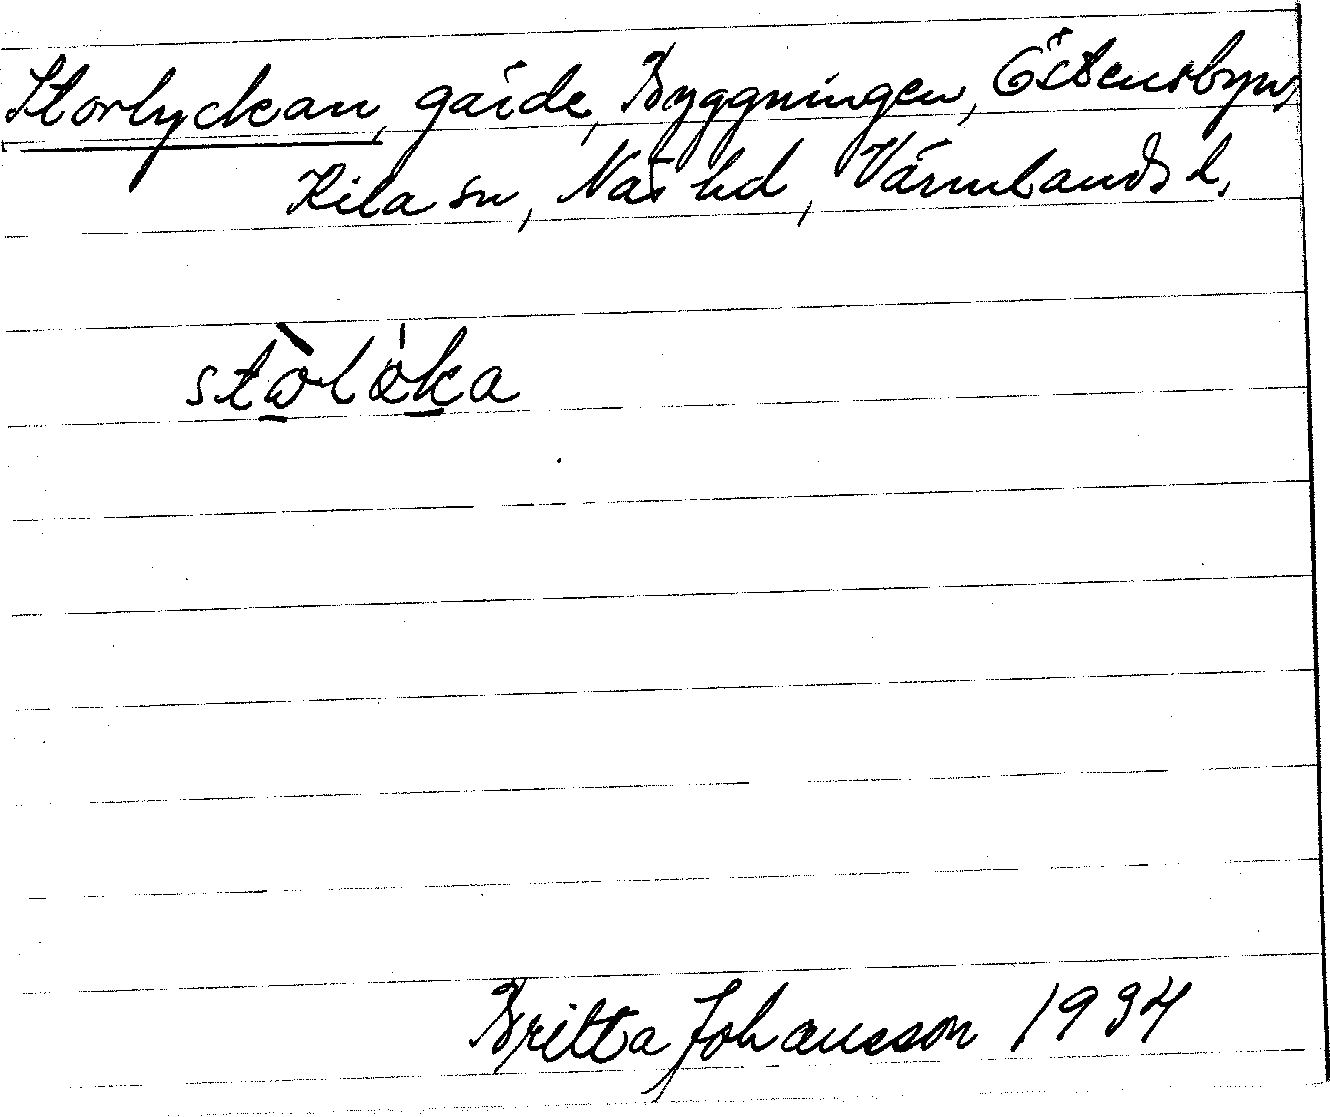 Storlyckan, gärde, Byggningen, Östensbyn,
Kila sn, Näs hd, Värmlands l.
stòlöka
Britta Johansson 1934